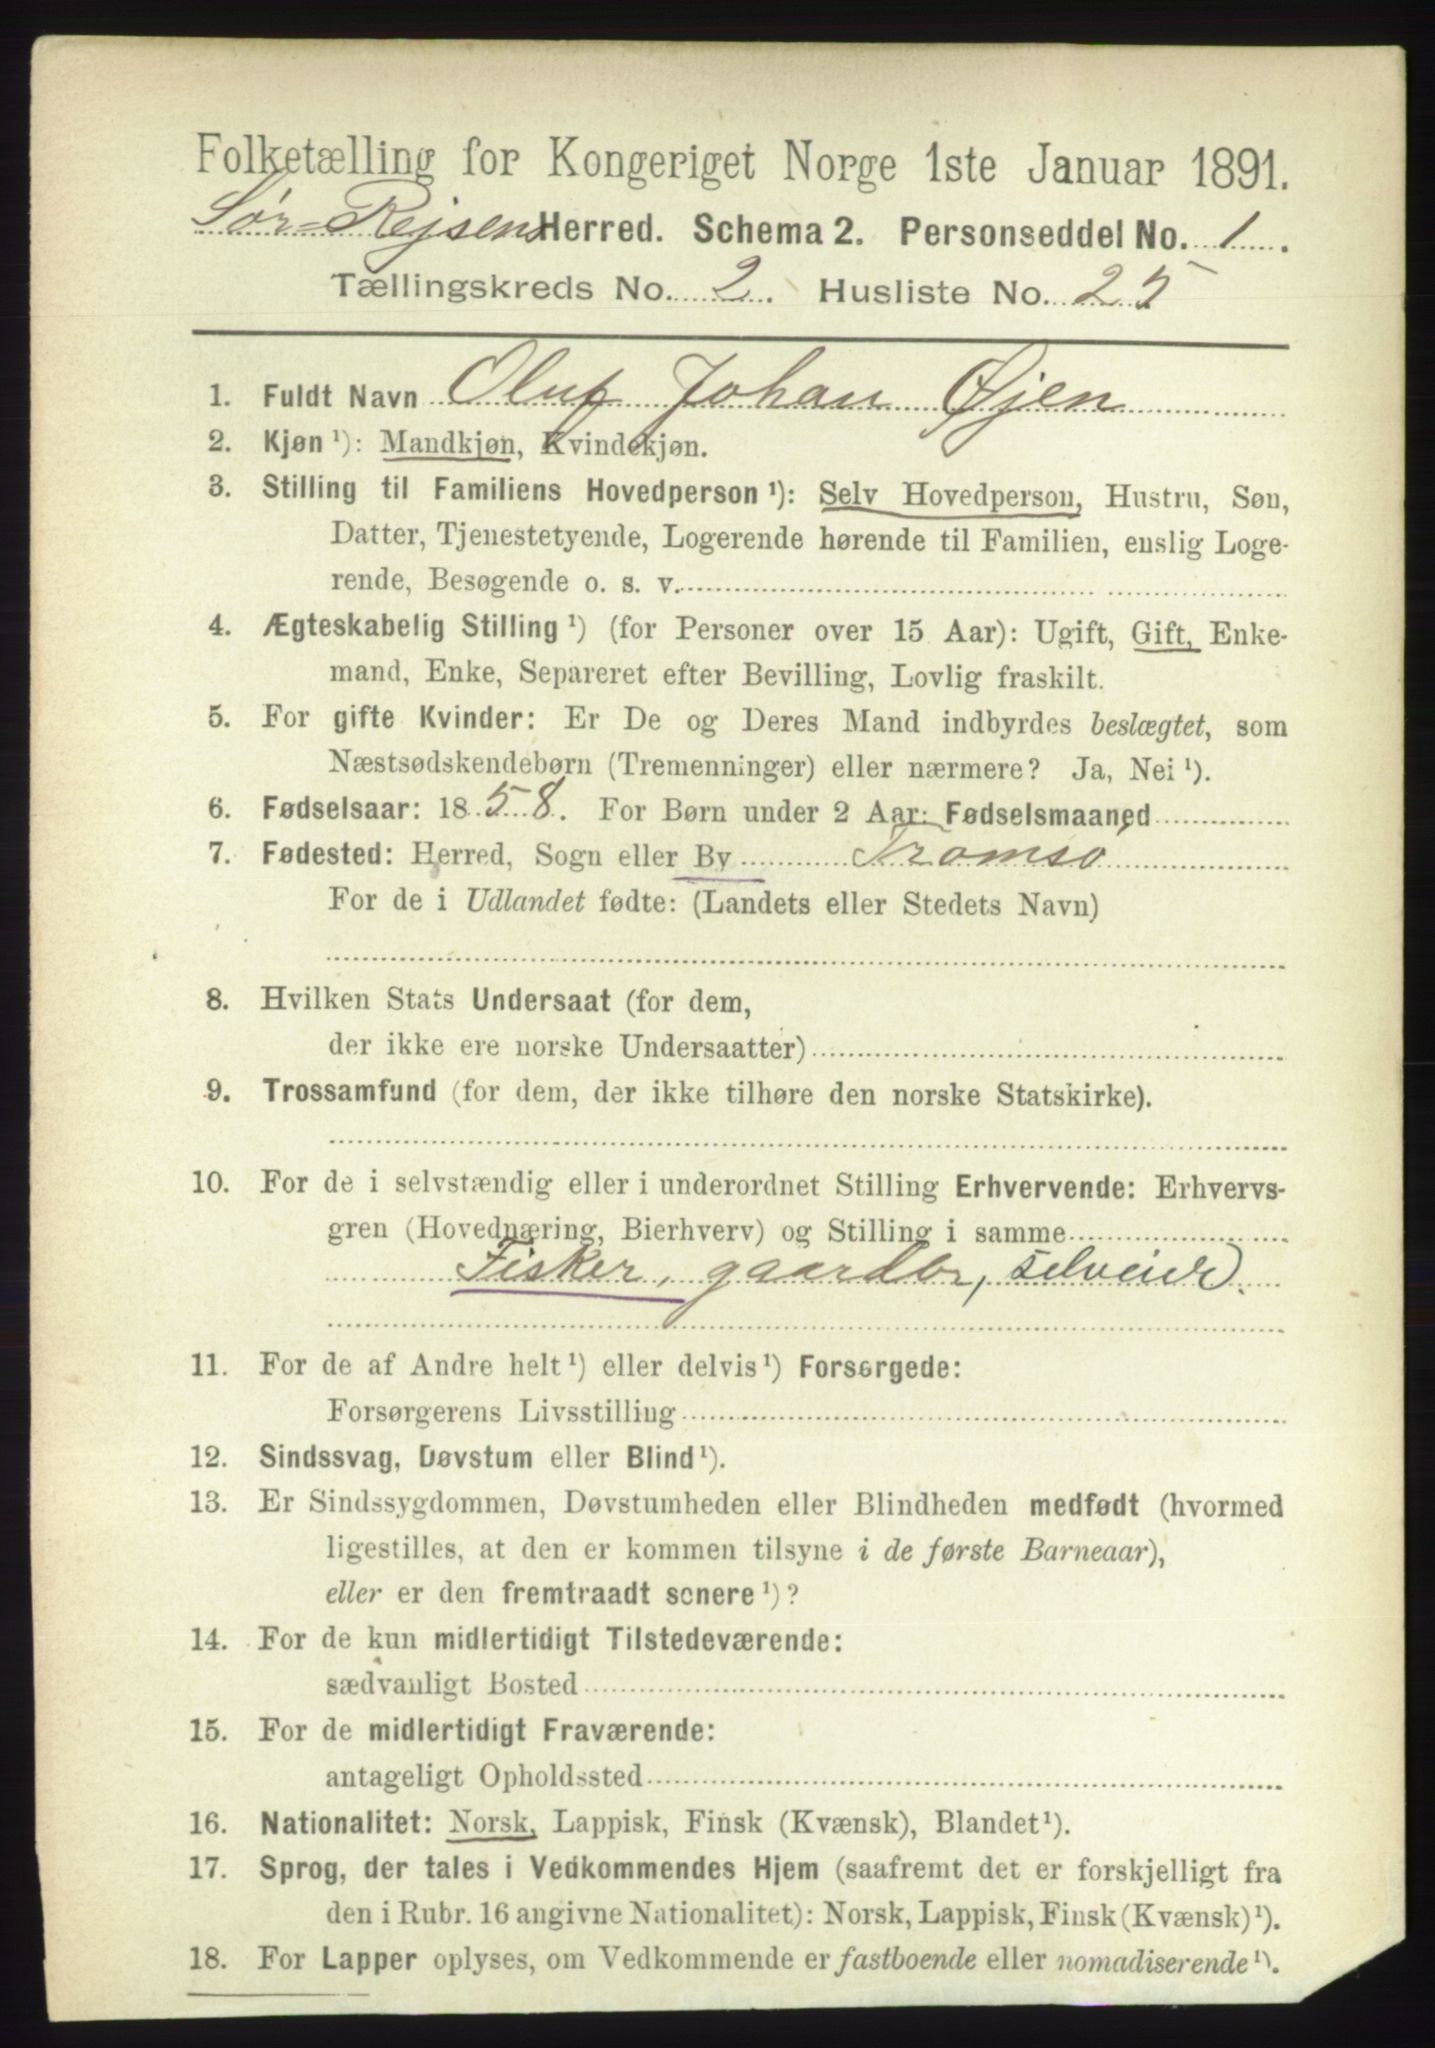 Folketælling for Kongeriget Norge 1ste Januar 1891.
Sør-Rejsens Herred. Schema 2. Personseddel No. 1.
Tællingskreds No. 2. Husliste No. 25
1. Fuldt Navn Oluf Johan Øjen
2. Kjøn ¹): Mandkjøn, Kvindekjøn.
3. Stilling til Familiens Hovedperson ¹): Selv Hovedperson, Hustru, Søn,
Datter, Tjenestetyende, Logerende hørende til Familien, enslig Loge-
rende, Besøgende o. s. v.
4. Ægteskabelig Stilling ¹) (for Personer over 15 Aar): Ugift, Gift, Enke-
mand, Enke, Separeret efter Bevilling, Lovlig fraskilt.
5. For gifte Kvinder: Er De og Deres Mand indbyrdes beslægtet, som
Næstsødskendebørn (Tremenninger) eller nærmere? Ja, Nei ¹).
6. Fødselsaar: 1858. For Børn under 2 Aar: Fødselsmaaned
7. Fødested: Herred, Sogn eller By Tromsø
For de i Udlandet fødte: (Landets eller Stedets Navn)
8. Hvilken Stats Undersaat (for dem,
der ikke ere norske Undersaatter)
9. Trossamfund (for dem, der ikke tilhøre den norske Statskirke).
10. For de i selvstændig eller i underordnet Stilling Erhvervende: Erhvervs-
gren (Hovednæring, Bierhverv) og Stilling i samme
Fisker, gaardbr, selveier.
11. For de af Andre helt ¹) eller delvis ¹) Forsørgede:
Forsørgerens Livsstilling
12. Sindssvag, Døvstum eller Blind ¹).
13. Er Sindssygdommen, Døvstumheden eller Blindheden medfødt (hvormed
ligestilles, at den er kommen tilsyne i de første Barneaar),
eller er den fremtraadt senere ¹)?
14. For de kun midlertidigt Tilstedeværende:
sædvanligt Bosted
15. For de midlertidigt Fraværende:
antageligt Opholdssted
16. Nationalitet: Norsk, Lappisk, Finsk (Kvænsk), Blandet ¹).
17. Sprog, der tales i Vedkommendes Hjem (saafremt det er forskjelligt fra
den i Rubr. 16 angivne Nationalitet): Norsk, Lappisk, Finsk (Kvænsk) ¹).
18. For Lapper oplyses, om Vedkommende er fastboende eller nomadiserende ¹).